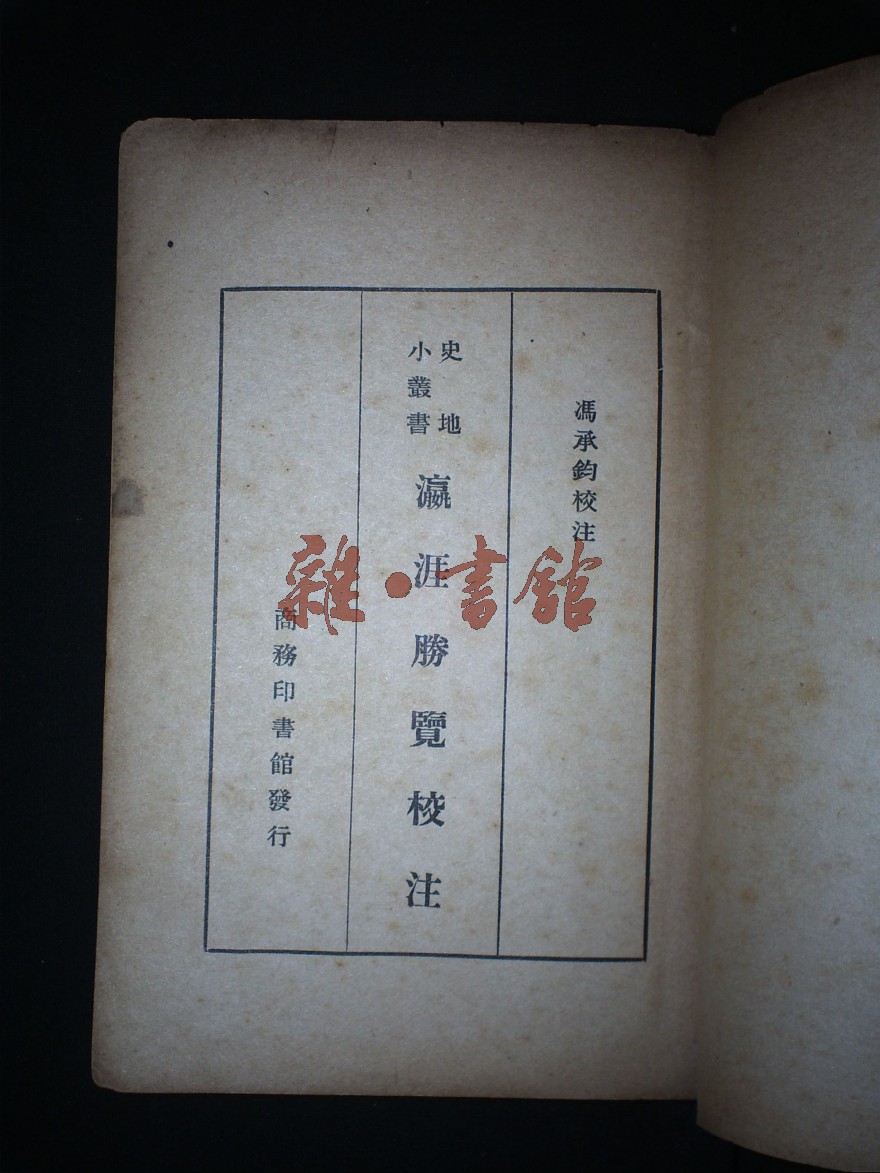 馮承鈞校注
史地
小叢書
瀛涯勝覽校注
商務印書館發行
雜·書館